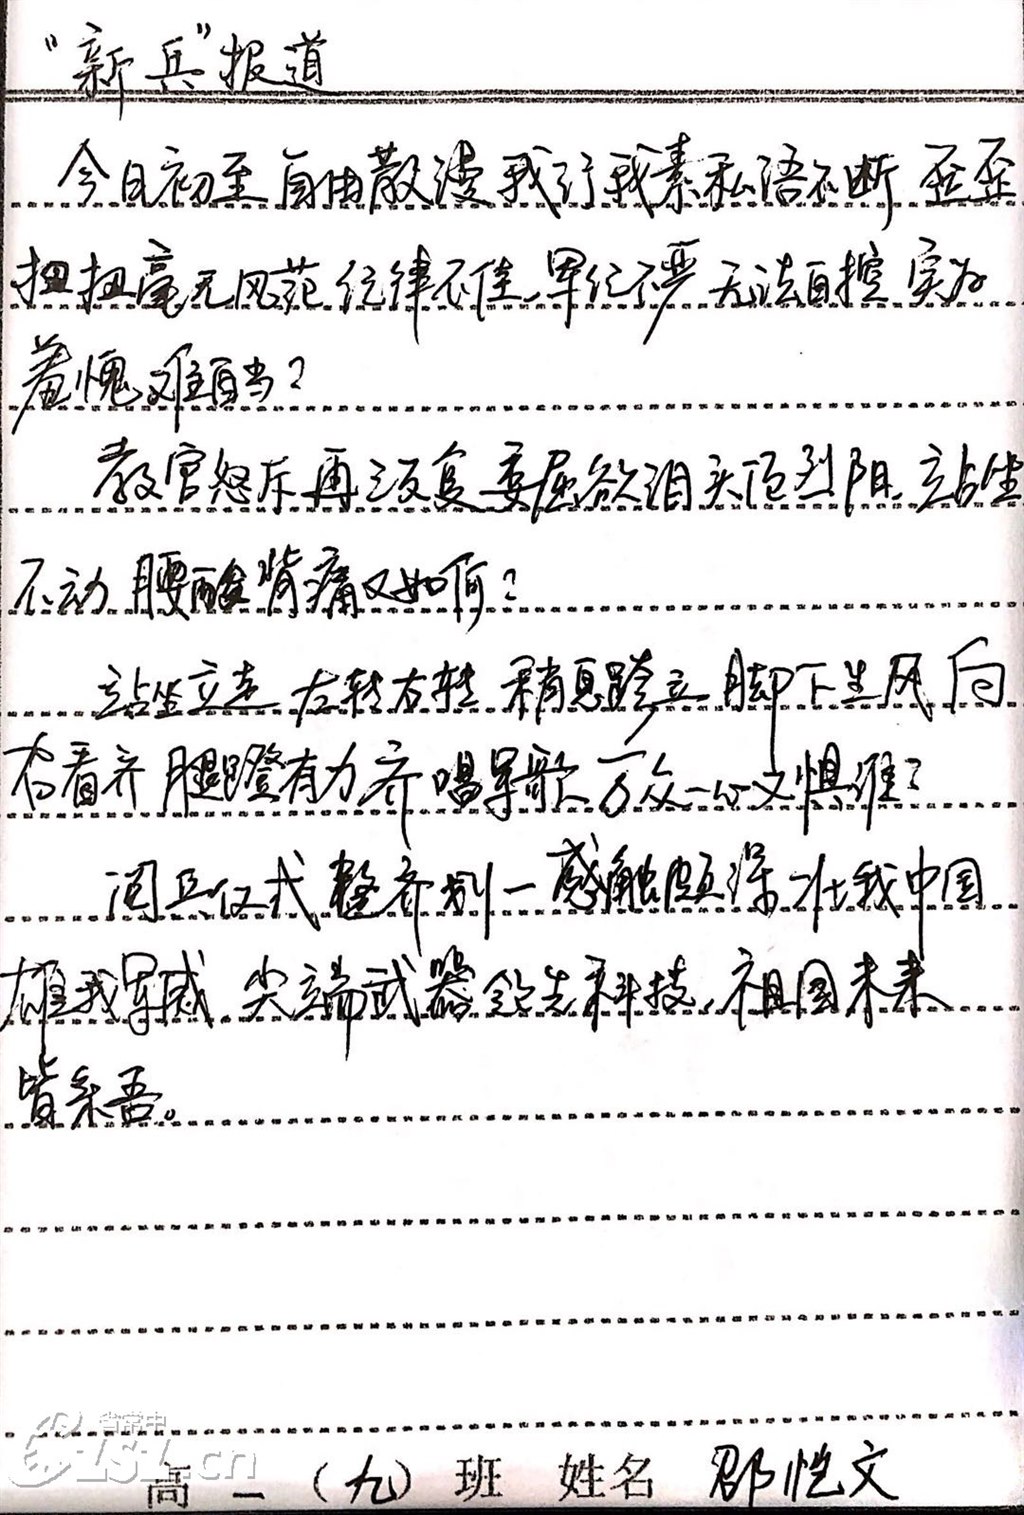 “新兵”报道
今日初至 自由散漫 我行我素 私语不断 歪歪
扭扭 毫无风范 纪律不佳 军纪不严 无法自控 实为
羞愧难自当?
教官怒斥 再三反复 委屈欲泪 头顶烈阳 站坐
不动 腰酸背痛又如何?
站坐立走 左转右转 稍息跨立 脚下生风 向
右看齐 腿蹬有力 齐唱军歌 万众一心又惧谁?
阅兵仪式 整齐划一 感触颇深 壮我中国
雄我军威 尖端武器 领先科技 祖国未来
皆系吾。
高一(九)班 姓名 邵恺文
省常中